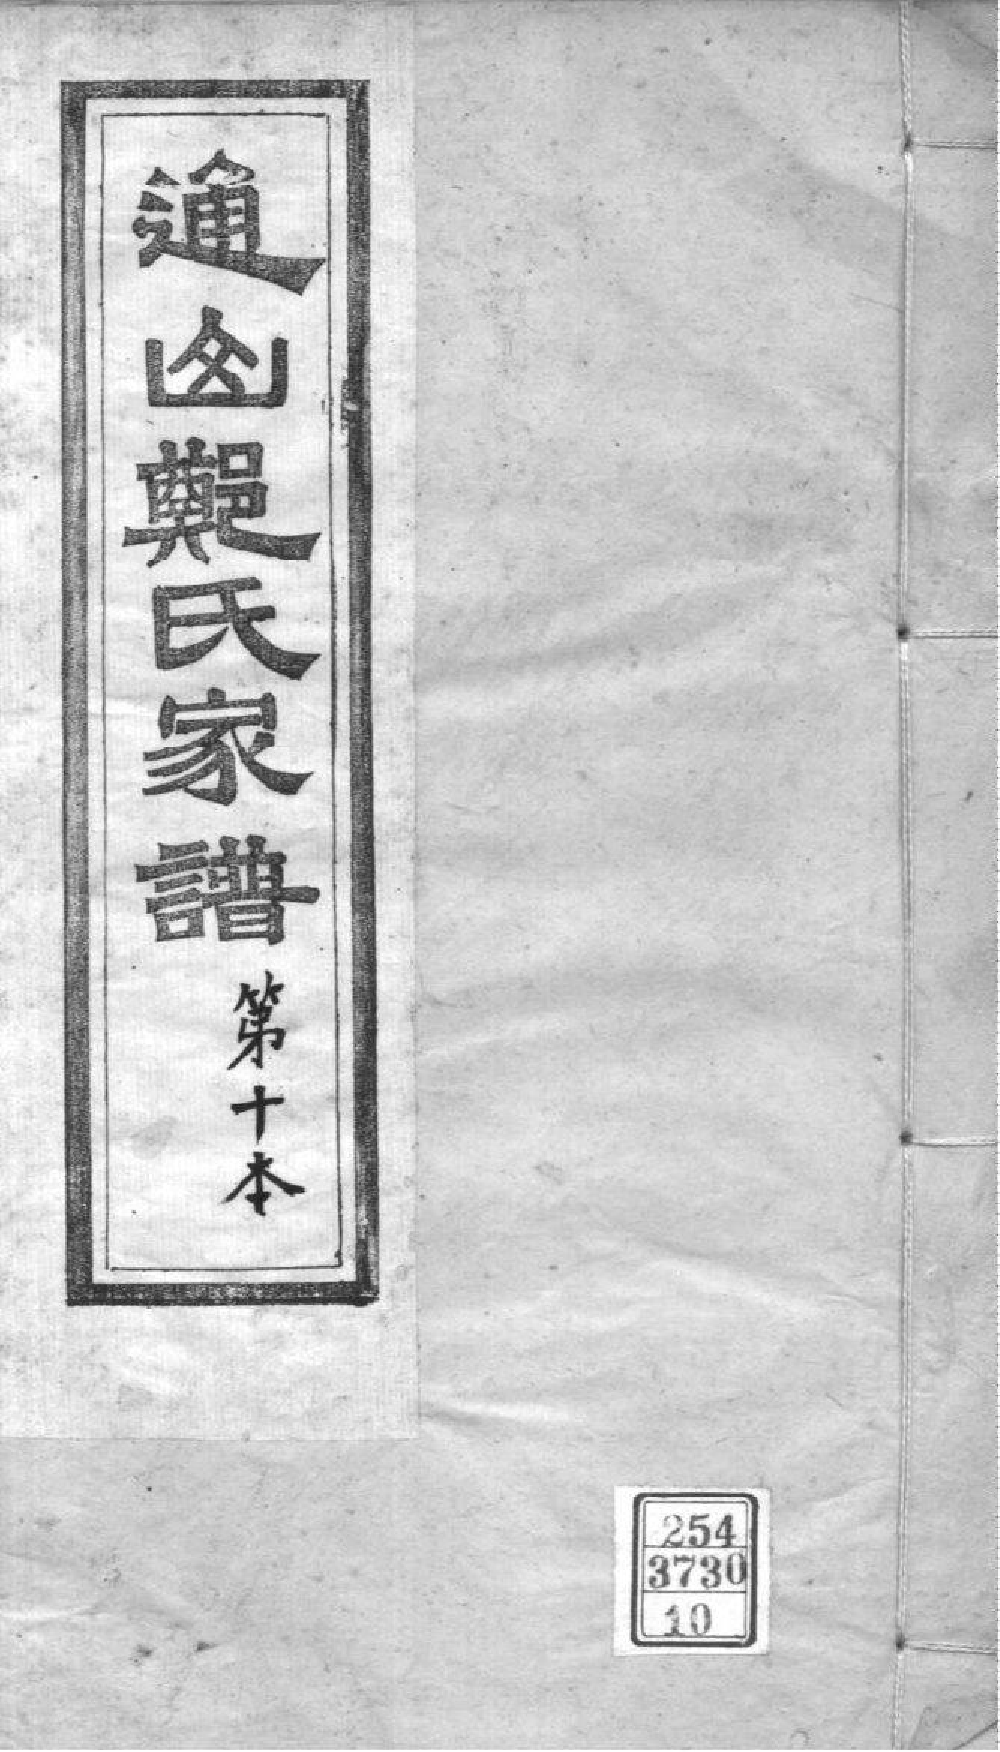 通山鄭氏家譜
第十本
254
3730
10